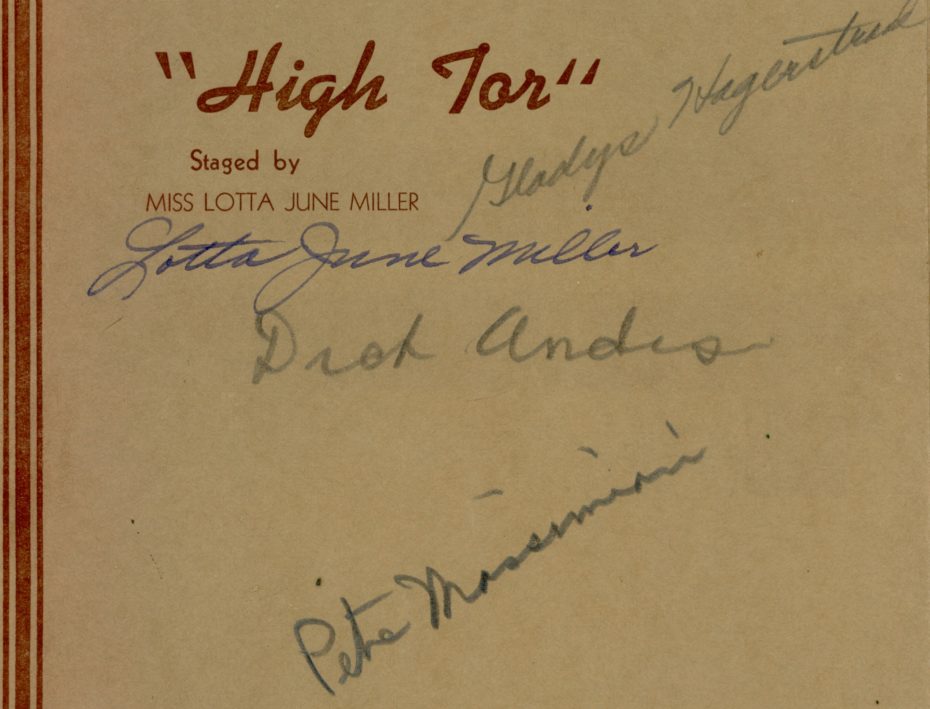 "High Tor"
Staged by
MISS LOTTA JUNE MILLER
Gladys Hagerstrud
Lotta June Miller
Dick Andes
Pete Massimini